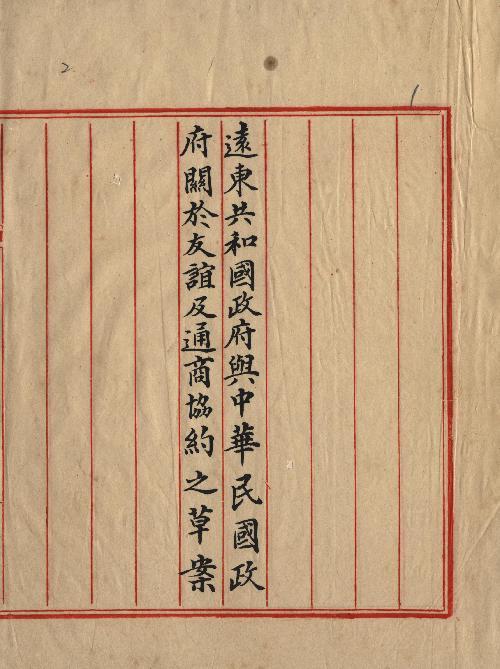 遠東共和國政府與中華民國政
府關於友誼及通商協約之草案